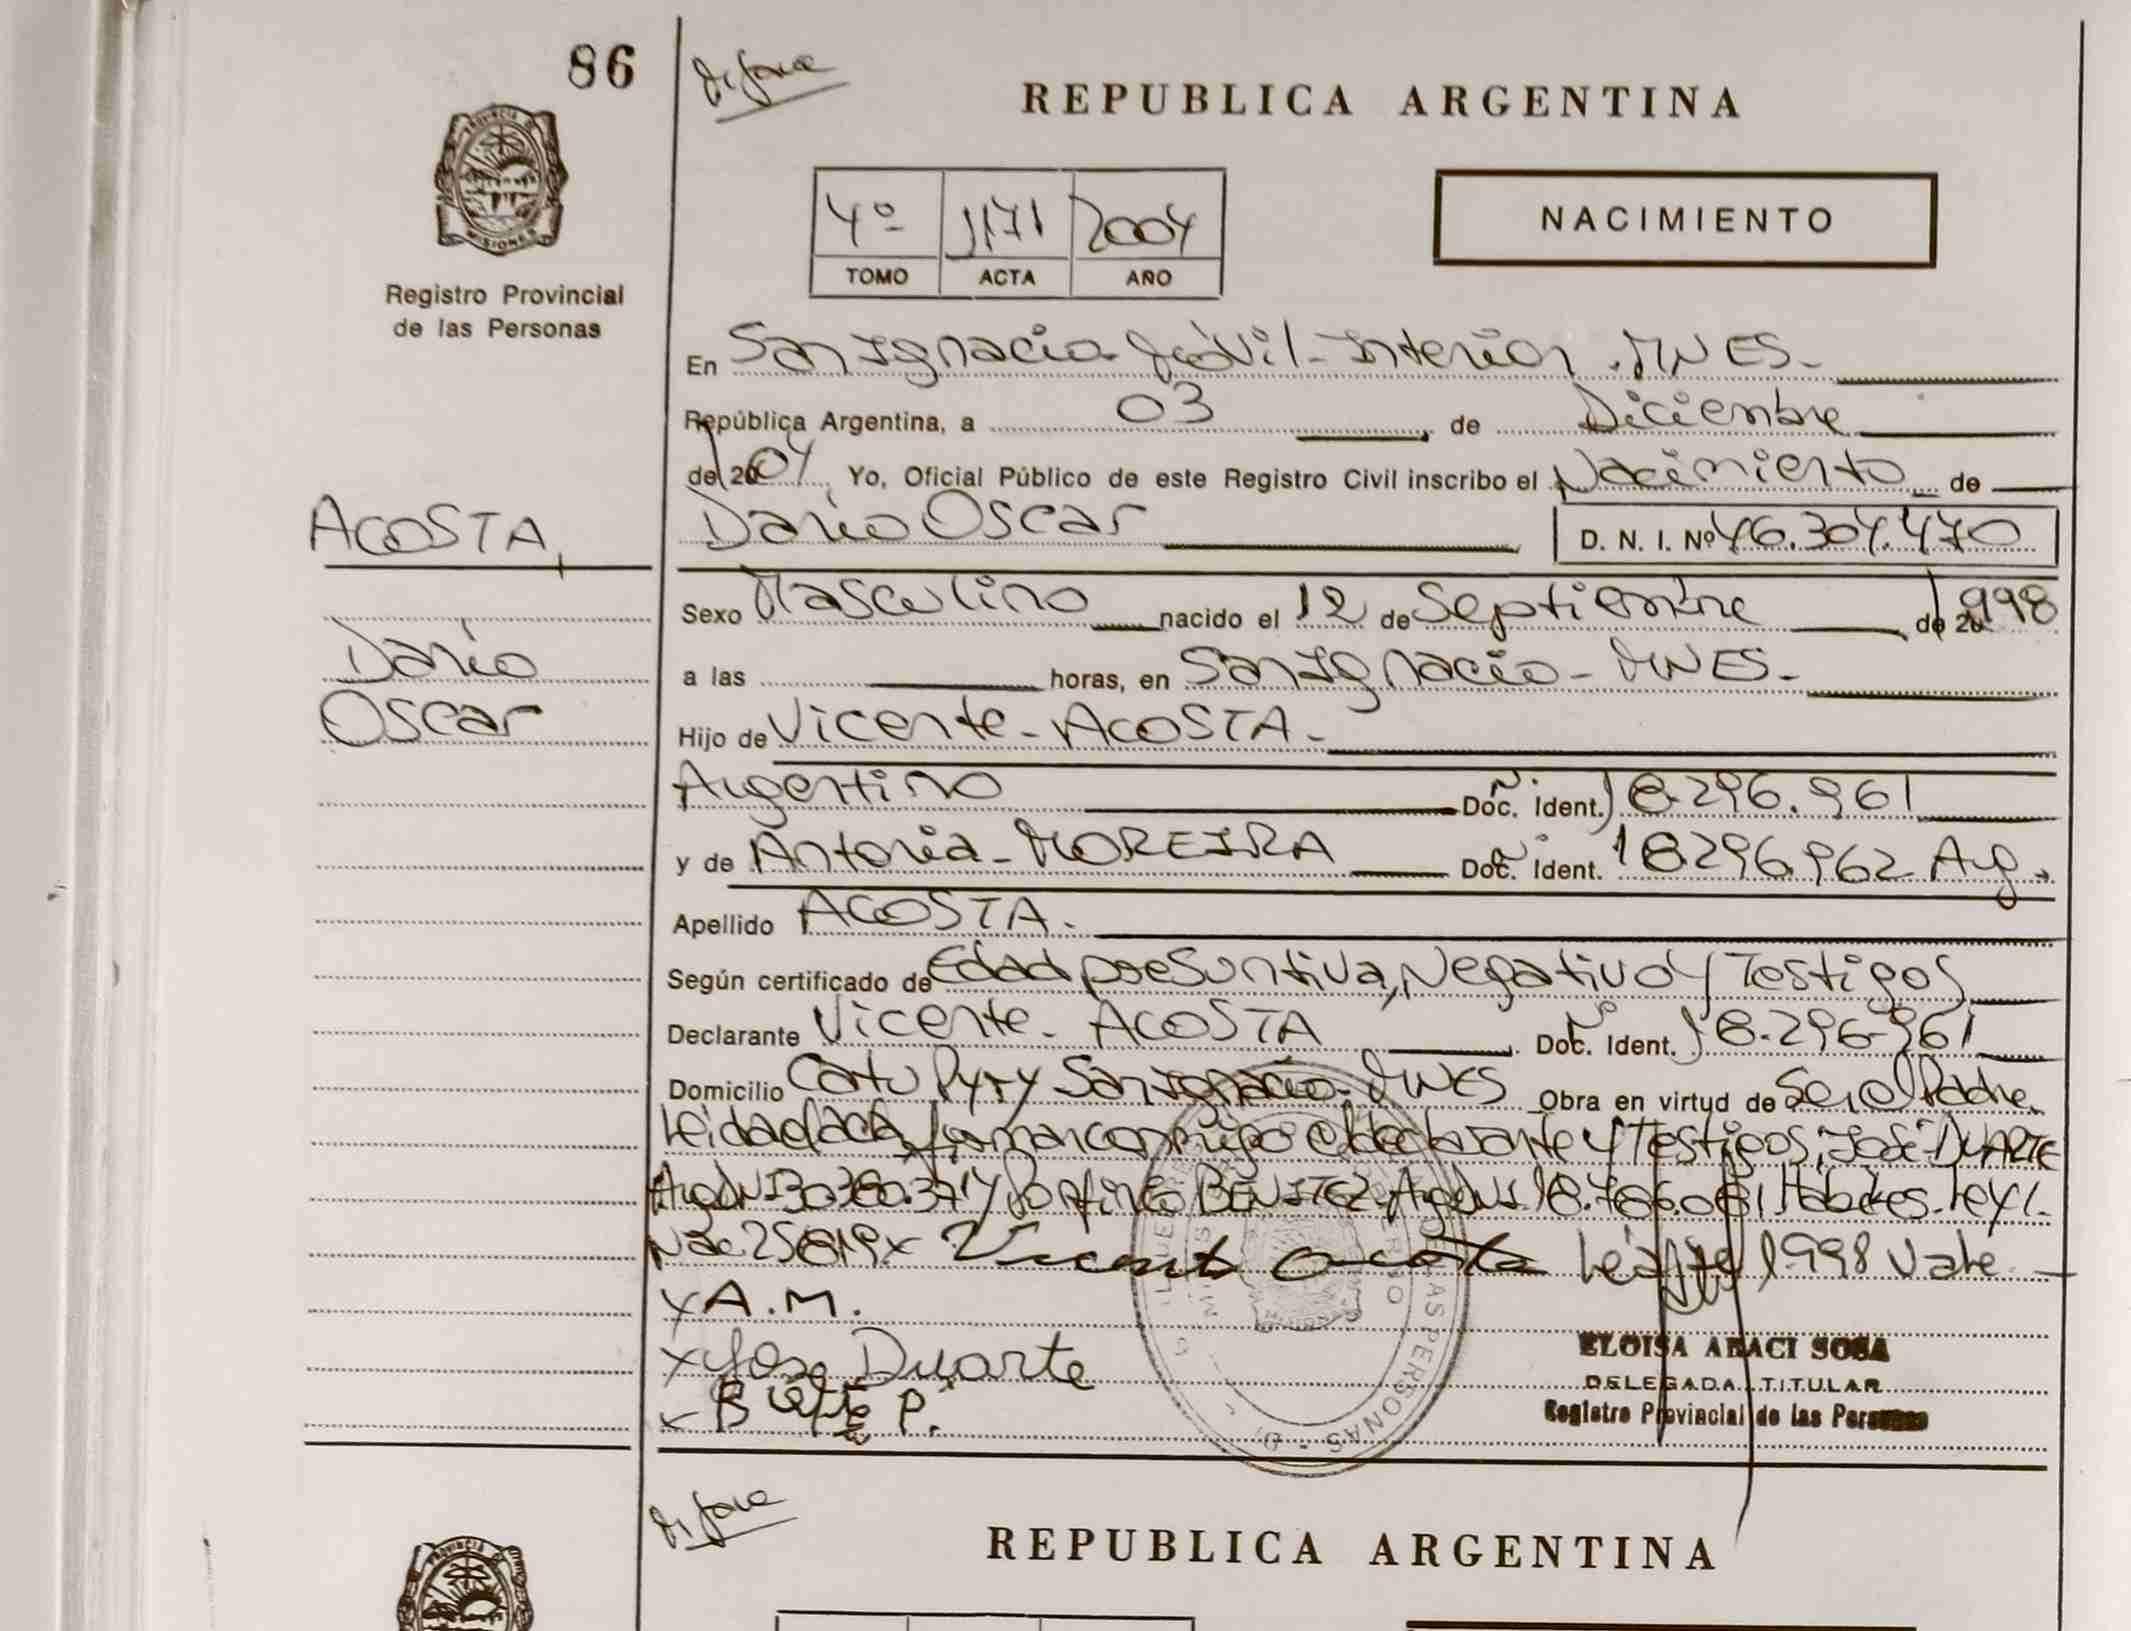 86
REPUBLICA ARGENTINA
PROVINCIA D
MISIONES
Registro Provincial
de las Personas
4º 1171 2004
TOMO ACTA AÑO
NACIMIENTO
En San Ignacio Móvil - Interior . MNES -
República Argentina, a 03 de Diciembre
de 2004 Yo, Oficial Público de este Registro Civil inscribo el Nacimiento de
ACOSTA,
Dario
Oscar
Dario Oscar D. N. I. Nº 46.304.470
Sexo Masculino nacido el 12 de Septiembre de 1998
a las horas, en San Ignacio - MNES -
Hijo de Vicente - ACOSTA -
Argentino Doc. Ident. 18.296.961
y de Antonia - MOREIRA Doc. Ident. 18296.962 Arg.
Apellido ACOSTA.
Según certificado de Edad presuntiva, Negativo y Testigos
Declarante Vicente - ACOSTA Doc. Ident. 18.296.961
Domicilio Katu Pyry San Ignacio - MNES Obra en virtud de Ser el Padre
Leida el acta, firman conmigo el declarante y Testigos: José DUARTE
Arg DNI 30.380.371 y Porfirio BENITEZ Arg DNI 18.786.081 Hábiles. Ley
Nac 25819 x Vicente acosta 1998 Vale
x A.M.
x Jose Duarte
x B P.
ELOISA ABACI SOSA
DELEGADA TITULAR
Registro Provincial de las Personas
REPUBLICA ARGENTINA
PROVINCIA D